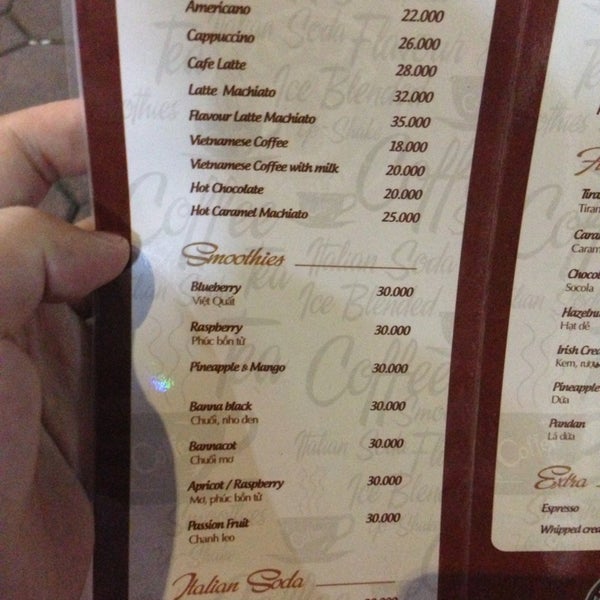 Americano 22.000
Cappuccino 26.000
Cafe Latte 28.000
Latte Machiato 32.000
Flavour Latte Machiato 35.000
Vietnamese Coffee 18.000
Vietnamese Coffee with milk 20.000
Hot Chocolate 20.000
Hot Caramel Machiato 25.000
Smoothies
Blueberry 30.000
Việt Quất
Raspberry 30.000
Phúc bồn tử
Pineapple & Mango 30.000
Banna black 30.000
Chuối, nho đen
Bannacot 30.000
Chuối mơ
Apricot / Raspberry 30.000
Mơ, phúc bồn tử
Passion Fruit 30.000
Chanh leo
Italian Soda
Hạt dẻ
Irish Crea
Kem, rượu
Pineapple
Dứa
Pandan
Lá dứa
Extra
Espresso
Whipped crea